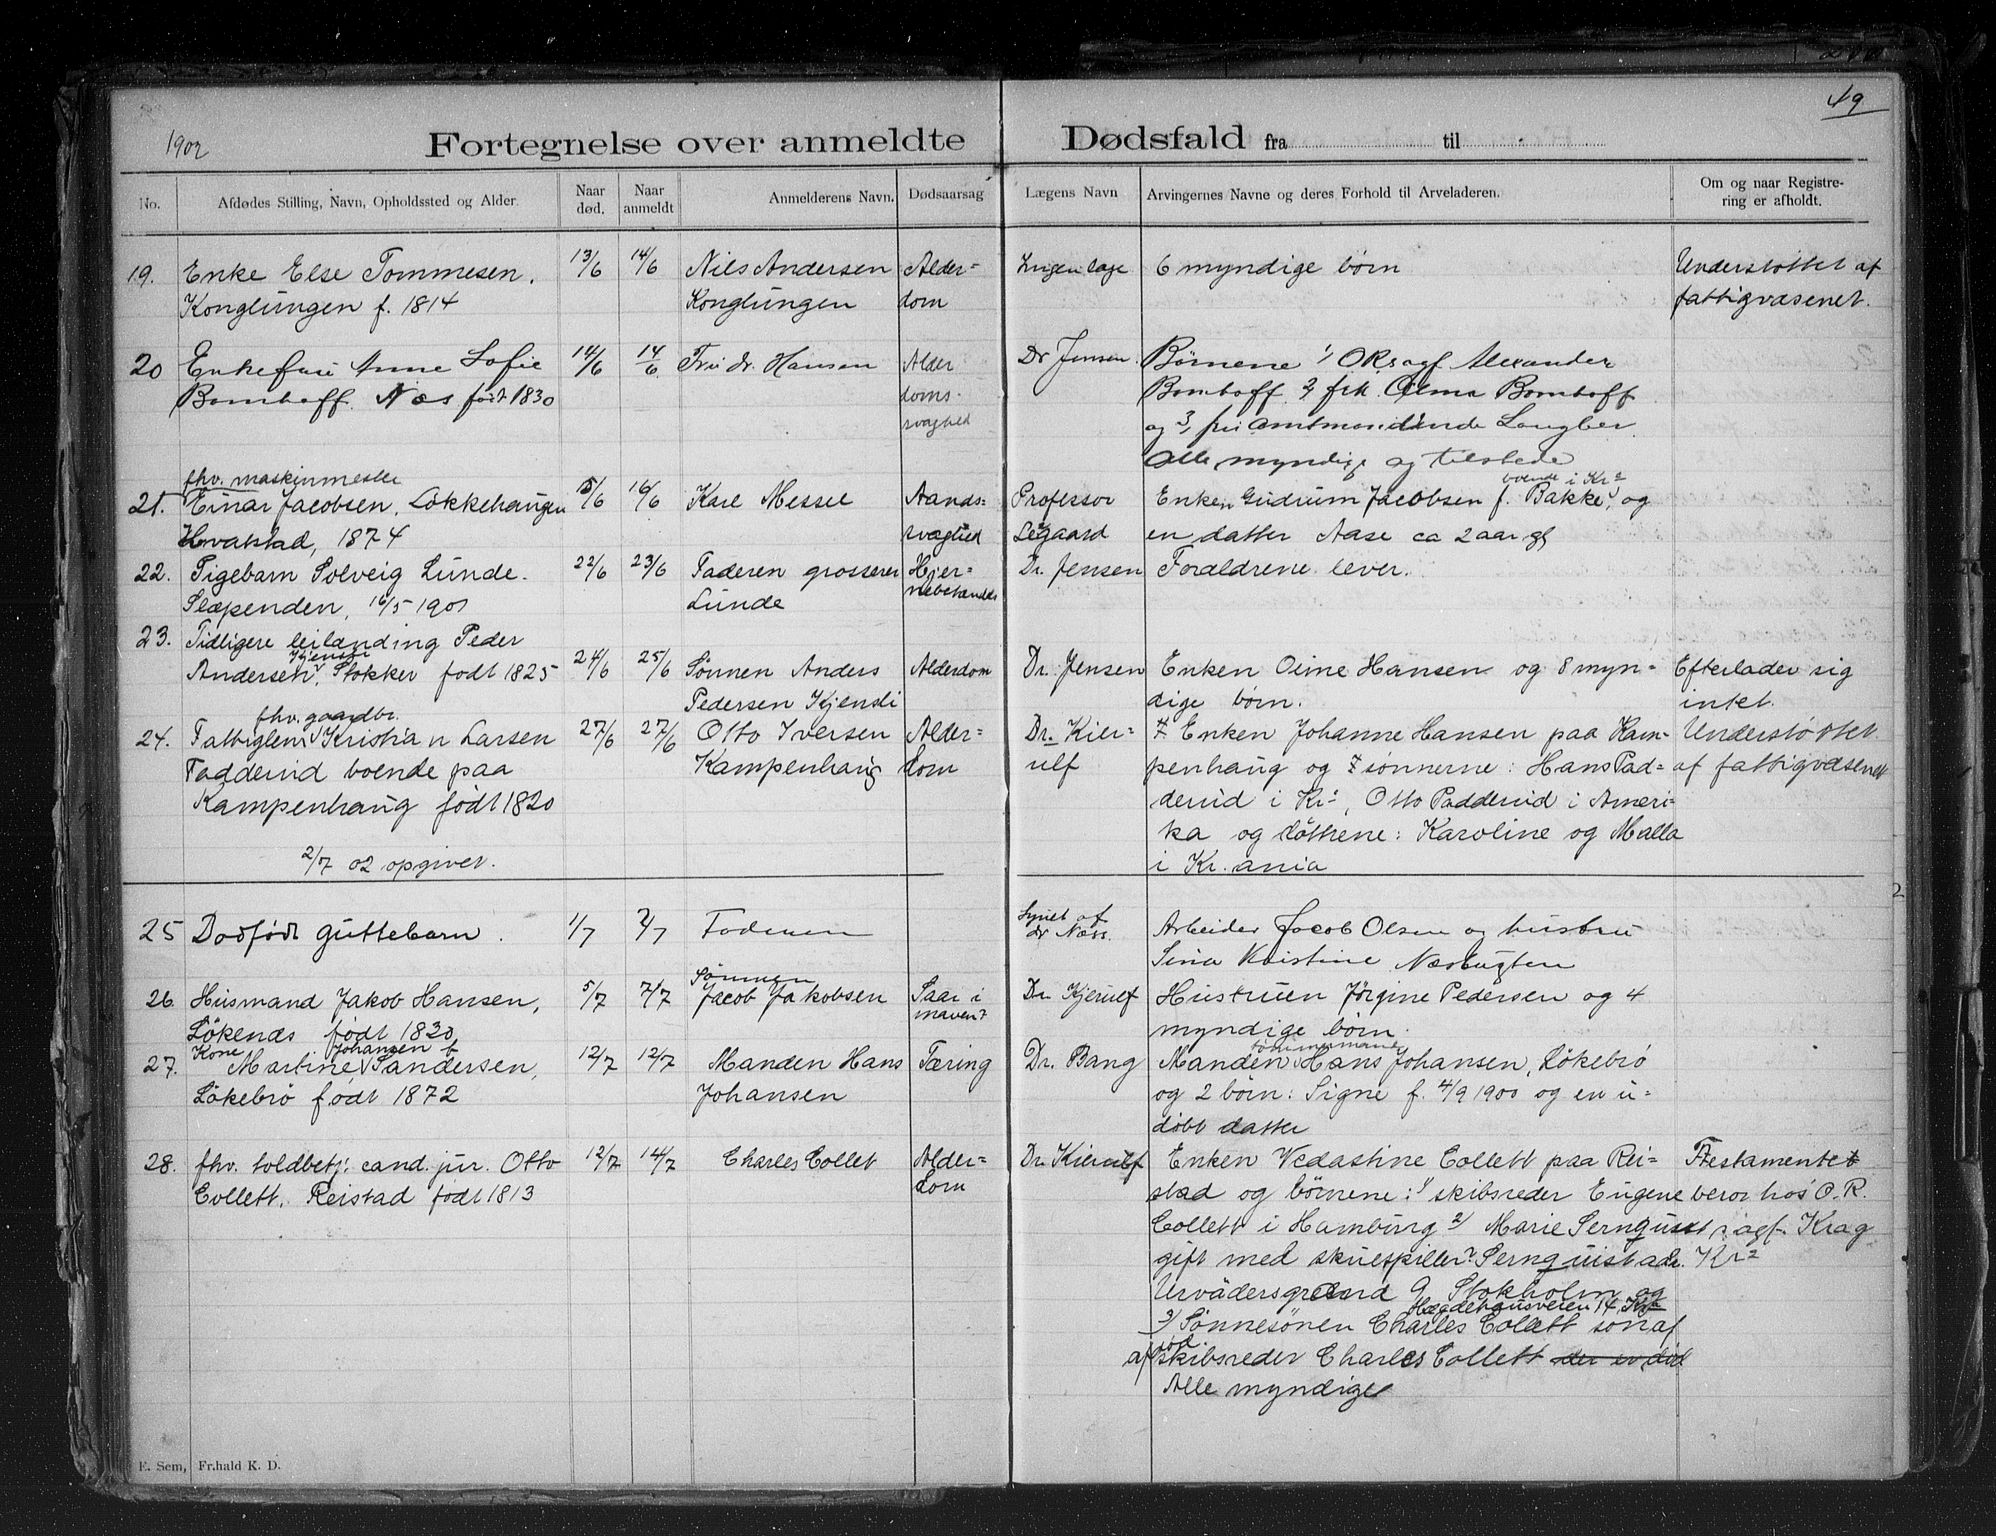 49
1902
Fortegnelse over anmeldte Dødsfald fra til
No. Afdødes Stilling, Navn, Opholdssted og Alder Naar død. Naar anmeldt Anmelderens Navn. Dødsaarsag Lægens Navn Arvingernes Navne og deres Forhold til Arveladeren. Om og naar Registrering er afholdt.
19. Enke Else Tommesen, 13/6 14/6 Nils Andersen Alder= Ingen læge 6 myndige børn Understøttet af
Konglungen f. 1814 Konglungen dom fattigvæsenet.
20 Enkefru Anne Sofie 14/6 14/6 Fru dr. Hansen Alder Dr Jensen. Børnene 1/ OKsagf Alexander
Bomhoff. Næs født 1830 doms- Bomhoff 2, frk. Alma Bomhoff
svaghed og 3, fru
Alle myndige og tilstede
fhv. maskinmester boende i Kr=
21. Einar Jacobsen, Løkkehaugen 15/6 16/6 Karl Messel Aands= Professor Enken Gudrum Jacobsen f. Bakke, og
Hvalstad, 1874 svaghed Legaard en datter Aase ca 2 aar gl
22. Pigebarn Solveig Lunde. 22/6 23/6 Faderen grosserer Hjer= Dr. Jensen Forældrene lever.
Slæpenden, 16/5 1901 Lunde
23. Tidligere leilænding Peder
Kjensli
Andersen, Stokker født 1825 24/6 25/6 Sønnen Anders Alderdom Dr. Jensen Enken Oline Hansen og 8 myn= Efterlader sig
Pedersen Kjensli dige børn. intet.
fhv. gaardbr.
24. Fattiglem Kristian Larsen 27/6 27/6 Otto Iversen Alder= Dr. Kier= Enken Johanne Hansen paa Kam= Understøttet
Padderud boende paa Kampenhaug dom ulf penhaug og sønnerne: Hans Pad= af fattigvæsenet
Kampenhaug født 1820 derud i Kr=, Otto Padderud i Ameri=
ka og døttrene: Karoline og Malla
2/7 02 opgivet. i Kr.ania
25 Dødfødt guttebarn. 1/7 2/7 Faderen Synet af dr Næss. Arbeider Jacob Olsen og hustru
Sina Kristine Næsbugten
Sønnen
26. Husmand Jakob Hansen, 5/7 7/7 Jacob Jakobsen Saar i Dr. Kjerulf Hustruen Jørgine Pedersen og 4
Løkenæs født 1830 maven myndige børn.
Kone Johansen tømmermand
27. Martine Sandersen, 12/7 12/7 Manden Hans Tæring Dr. Bang Manden Hans Johansen, Løkebrø
Løkebrø født 1872 Johansen og 2 børn: Signe f. 4/9 1900 og en u=
døbt datter
28. fhv. toldbetj. cand. jur. Otto 12/7 14/7 Charles Collet Alder= Dr. Kierulf Enken Vedastine Collett paa Rei= Testamentet
Collett, Reistad født 1813 dom stad og børnene: 1/ skibsreder Eugene beror hos O.R.
Collett i Hamburg 2/ Marie Sernquist sagf. Krag
gift med skuespiller Sernquist adr. Kr=
Urvädersgränd 9 Stokholm og
Hægdehaugsveien 14 Kr=
3/ Sønnesønen Charles Collett søn af
af død skibsreder Charles Collett der er død
Alle myndige
E. Sem, Fr.hald K. D.